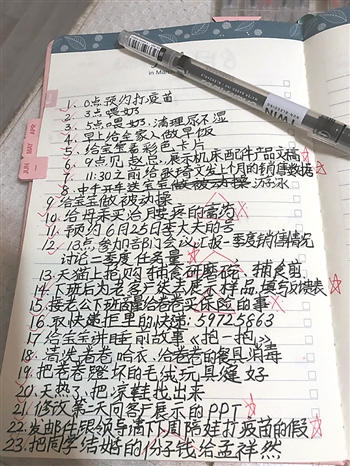 in Mar
TWIN
APR
MAY
JUN
1、0点预约打疫苗
2、3点喂奶
3、5点喂奶、清理尿不湿
4、早上给全家人做早饭
5、给宝宝看彩色卡片
6、9点见赵总,展示机床配件产品文稿
7、11:30之前给张琦发上个月的销售数据
8、中午开车送宝宝做被动操游泳
9、给宝宝做被动操
10、给母亲买治月要疼的膏药
11、预约6月25日李大夫的号
12、13点参加部门会议汇报一季度销售情况
讨论二季度任务量
13、天猫上抢购辅食研磨碗、辅食剪
14、下班后为老客户送去展示样品,填写反馈表
15、接老公下班商量给老爸买保险的事
16、取快递柜里的快递:59725863
17、给宝宝讲睡前故事《抱一抱》
18、清洗爸爸哈衣、给爸爸的餐具消毒
19、把老爸蹬坏的毛绒玩具缝好
20、天热了把凉鞋找出来
21、修改第二天向客户展示的PPT
22、发邮件跟领导请下周陪娃打疫苗的假
23、把同学结婚的份子钱给孟祥然